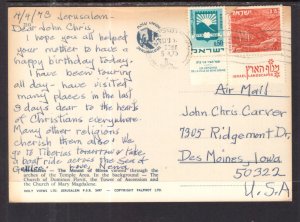 14/4/73 Jerusalem.
Dear John Chris,
I hope you all helped
your mother to have a
happy birthday today.
I have been touring
all day - have visited
many places in the last
3 days dear to the hearts
of Christians everywhere.
Many other religions
cherish them also. We
go to Tiberias tomorrow & take
boat ride across the Sea of
Galilee. Love, Nema
The Mount of Olives viewed through the
arches of the Temple Area. In the background — The
Church of Dominus Flevit, the Tower of Ascension and
the Church of Mary Magdalene.
HOLY VIEWS JERUSALEM P.O.B. COPYRIGHT PALPHOT LTD.
ISRAEL ישראל
0.50
ישראל
נופי הארץ
ISRAEL-LANDSCAPES
Air Mail
John Chris Carver
7305 Ridgemont Dr.
Des Moines, Iowa
50322
U.S.A